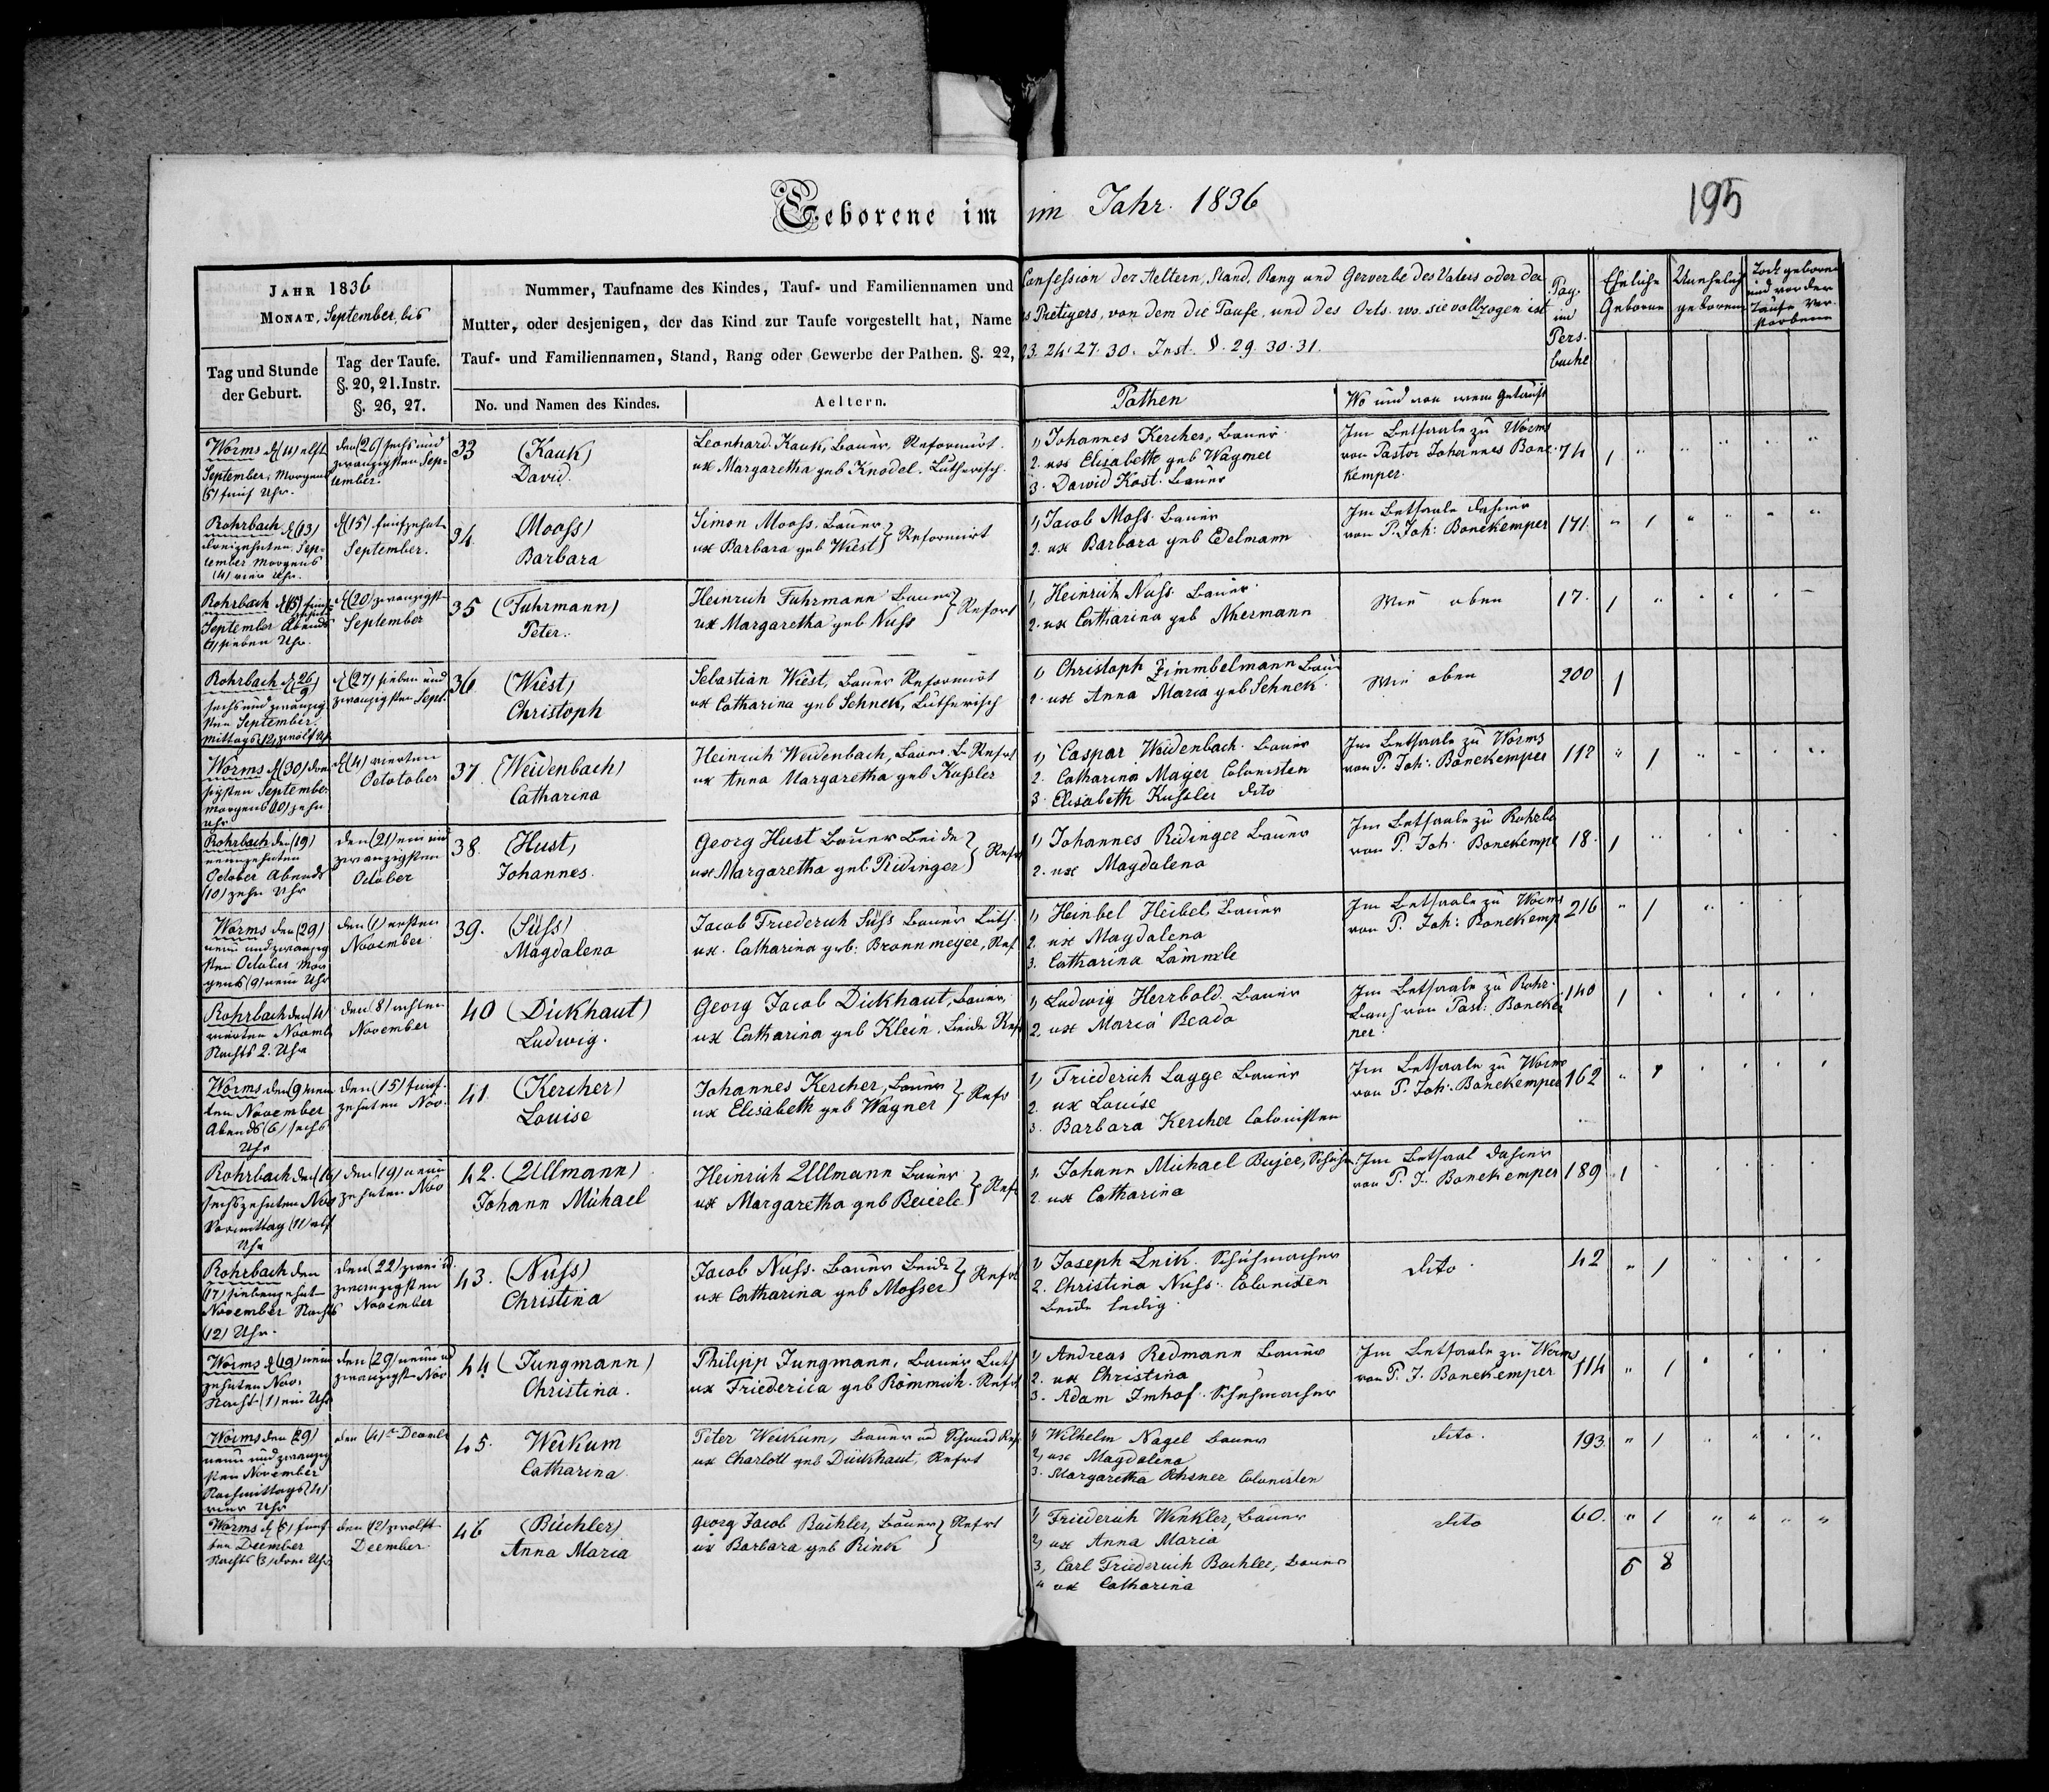 Geborene im im Jahr. 1836
195
JAHR 1836
MONAT. September bis
Nummer, Taufname des Kindes, Tauf- und Familiennamen und Confession der Aeltern, Stand, Rang und Gewerbe des Vaters oder der
Mutter, oder desjenigen, der das Kind zur Taufe vorgestellt hat, Name des Predigers, von dem die Taufe, und des Orts. wo sie vollzogen ist
Tauf- und Familiennamen, Stand, Rang oder Gewerbe der Pathen. §. 22, 23. 24. 27. 30. Inst. §. 29. 30. 31.
Pag.
im
Pers.
buche
Eheliche
Geborene
Unehelich
geborene
Todt geborene
und vor der
Taufe ver-
storbene
Tag und Stunde
der Geburt.
Tag der Taufe.
§. 20, 21. Instr.
§. 26, 27.
No. und Namen des Kindes.
Aeltern.
Pathen
Wo und von wem getauft
Worms d. (11) elft
September, Morgens
(5) fünf Uhr.
den (26) sechs und
zwanzigsten Sep-
tember.
33 (Kauk)
David.
Leonhard Kauk, Bauer, Reformirt.
ux Margaretha geb Knodel. Lutherisch.
1, Johannes Kercher, Bauer
2. ux Elisabeth geb Wagner
3. David Kost. Bauer
Im Betsaale zu Worms
von Pastor Johannes Bone-
kemper.
74 1 " "
Rohrbach d. (13)
dreizehnten Sep-
tember Morgens
(4) vier Uhr.
d (15) fünfzehnt
September.
34. (Mooss)
Barbara
Simon Mooss. Bauer
ux Barbara geb Wiest } Reformirt
1, Jacob Moss. Bauer
2. ux Barbara geb Edelmann
Im Betsaale dahier
von P. Joh: Bonekemper
171. " 1 " " " "
Rohrbach d. (15) fünf-
September Abends
(7) sieben Uhr.
d (20) zwanzigst
September
35 (Fuhrmann)
Peter.
Heinrich Fuhrmann Bauer
ux Margaretha geb Nuss } Refort
1, Heinrich Nuss. Bauer
2. ux Catharina geb
Wie oben
17. 1 " " " "
Rohrbach d. 26/9
sechs und zwanzig-
sten September.
Mittags 12, zwölf Uh
d (27) sieben und
zwanzigsten Sept.
36 (Wiest)
Christoph
Sebastian Wiest, Bauer Reformirt
ux Catharina geb Schnek, Lutherisch
1) Christoph Zimmbelmann Bauer
2. ux Anna Maria geb Schnek.
Wie oben
200 1
Worms d (30) drei-
sigsten September
morgens (10) zehn
Uhr
d (4) vierten
Octotober
37. (Weidenbach)
Catharina
Heinrich Weidenbach, Bauer. B. Refrt
ux Anna Margaretha geb Kussler
1, Caspar Weidenbach. Bauer
2. Catharina Mayer Colonisten
3. Elisabeth Kussler dito
Im Betsaale zu Worms
von P. Joh: Bonekemper
112 " 1 " " "
Rohrbach den (19)
neunzehnten
October Abends
(10) zehn Uhr
den (21) ein und
zwanzigsten
October
38. (Hust)
Johannes.
Georg Hust Bauer Beide
ux Margaretha geb Ridinger } Refrt
1, Johannes Ridinger Bauer
2. ux Magdalena
Im Betsaale zu Rohrba
von P. Joh. Bonekempe
18. 1 "
Worms den (29)
neun und zwanzig
sten October Mor
gens (9) neun Uhr
den (1) ersten
November
39. (Süss)
Magdalena
Jacob Friederich Süss Bauer Luth.
ux. Catharina geb: Bronnmeyer, Ref
1, Heinbel Heibel, Bauer
2. ux Magdalena
3. Catharina Lämmle
Im Betsaale zu Worms
von P. Joh: Bonekemp
216 " 1 "
Rohrbach den (4)
vierten Novemb
Nachts 2. Uhr
den (8) achten
November
40 (Dickhaut)
Ludwig.
Georg Jacob Dickhaut, Bauer,
ux Catharina geb Klein. Beide Ref
1, Ludwig Herrbold. Bauer
2. ux Maria Beada
Im Betsaale zu Rohr-
bach von Past: Bonekem
per
140 1
Worms den (9) neun
ten November
Abends (6) sechs
Uhr
den (15) fünf-
zehnten Nov.
41. (Kercher)
Louise
Johannes Kercher, Bauer
ux Elisabeth geb Wagner } Refr
1, Friederich Lagge Bauer
2. ux Louise
3. Barbara Kercher Colonisten
Im Betsaale zu Worms
von P. Joh. Bonekemper
162 " 1
Rohrbach den (16)
sechszehnten Nov
Vormittag (11) elf
Uhr
den (19) neun
zehnten Nov
42. (Ullmann)
Johann Michael
Heinrich Ullmann Bauer
ux Margaretha geb Beierle } Refr
1, Johann Michael Bujer, Schuhm
2. ux Catharina
Im Betsaal dahier
von P. J. Bonekemper
189 1
Rohrbach den
(17) siebenzehnt
November Nachts
(12) Uhr.
den (22) zwei u.
zwanzigsten
November
43. (Nuss)
Christina
Jacob Nuss. Bauer Beide
ux Catharina geb Mosser } Refrt
1, Joseph Lnik. Schuhmacher
2. Christina Nuss. Colonisten
beide ledig.
dito.
42 " 1
Worms d (19) neun
zehnten Nov.
Nacht (1) ein Uhr
den (29) neun u
zwanzigst Nov
44 (Jungmann)
Christina.
Philipp Jungmann, Bauer Luth
ux Friederica geb Römmich. Refrt
1, Andreas Redmann Bauer
2. ux Christina
3. Adam Imhof. Schuhmacher
Im Betsaale zu Worms
von P. J. Bonekemper
114 " 1
Worms den (29)
neun und zwanzig
sten November
Nachmittags (4)
vier Uhr
den (4) Decemb
45. Weikum
Catharina.
Peter Weikum, Bauer und Schmied Ref
ux Charlott geb Dickhaut, Refrt
1, Wilhelm Nagel Bauer
2, ux Magdalena
3. Margaretha Ochsner Colonisten
dito.
193. " 1 " " " "
Worms d (5) fünf-
ten December
Nachts (3) drei Uhr
den (12) zwolft
December.
46 (Büchler)
Anna Maria
Georg Jacob Büchler, Bauer
ux Barbara geb Rink } Refrt
1, Friederich Winkler, Bauer
2, ux Anna Maria
3, Carl Friederich Bachler, Bauer
" ux Catharina
dito
60. " 1 " " " "
6 8